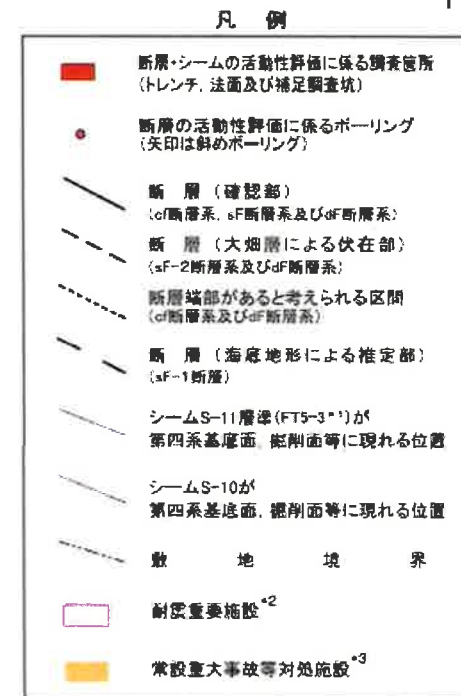 凡 例
断層・シームの活動性評価に係る調査箇所
(トレンチ, 法面及び補足調査坑)
断層の活動性評価に係るボーリング
(矢印は斜めボーリング)
断 層 (確認部)
(cf断層系, sF断層系及びdF断層系)
断 層 (大畑層による伏在部)
(sF-2断層系及びdF断層系)
断層端部があると考えられる区間
(cf断層系及びdF断層系)
断 層 (海底地形による推定部)
(sF-1断層)
シームS-11層準(FT5-3*1)が
第四系基底面, 掘削面等に現れる位置
シームS-10が
第四系基底面, 掘削面等に現れる位置
敷 地 境 界
耐震重要施設*2
常設重大事故等対処施設*3